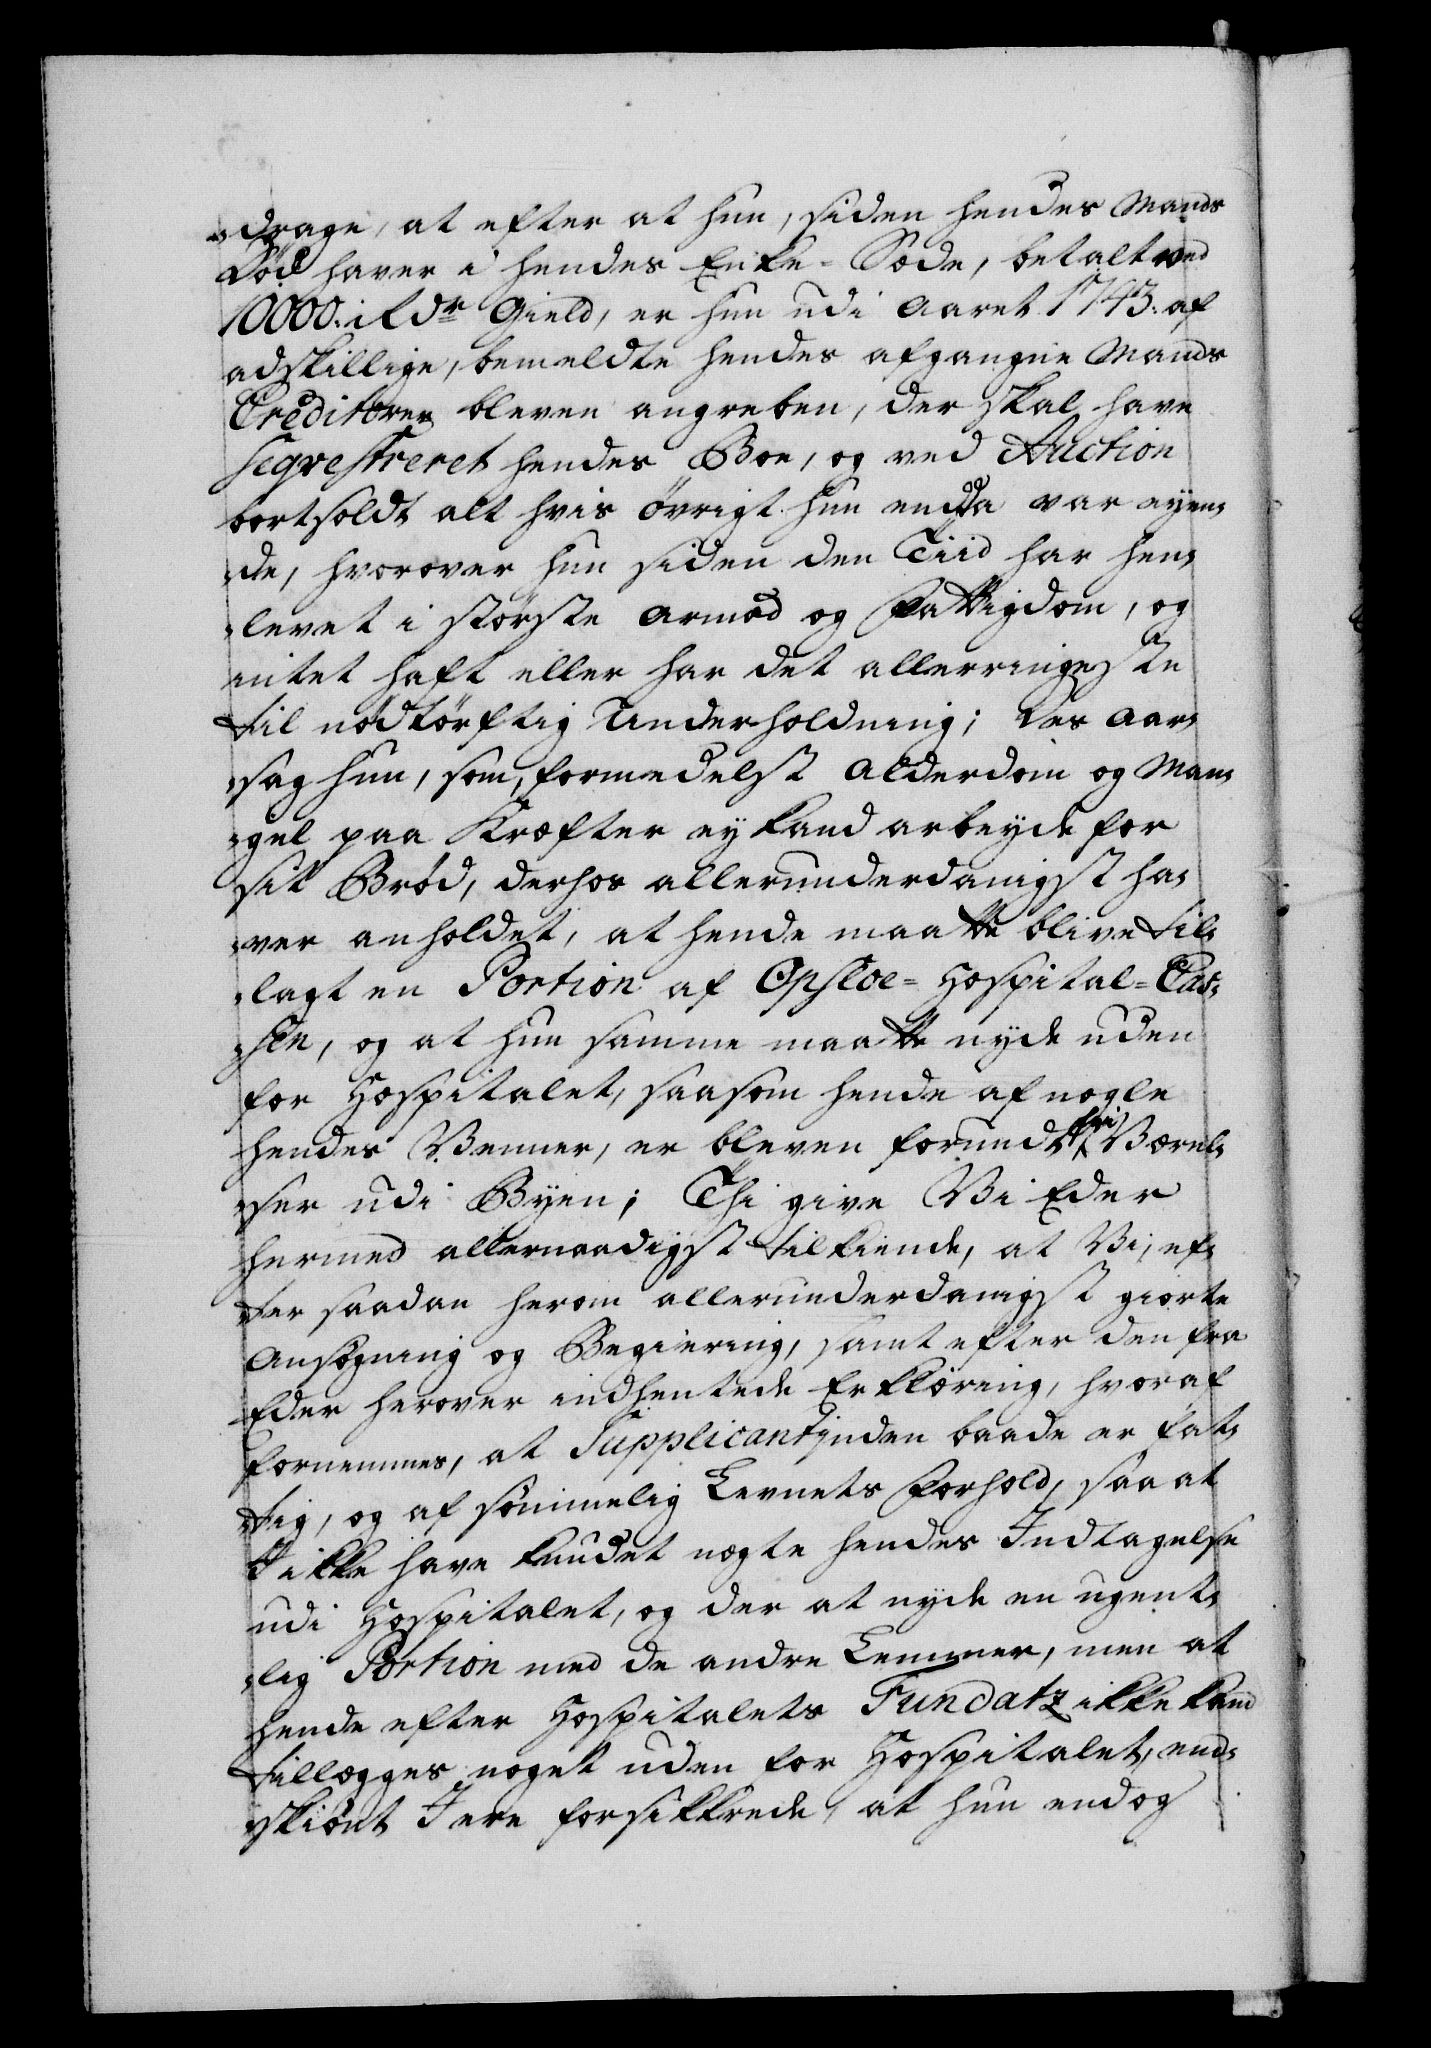 -drage, at efter at hun, siden hendes Mands
Død haver i hendes Enke-Sæde, betalt ved
10000. rldr Gield, er hun udi Aaret 1743. af
adskillige, bemeldte hendes afgangne Mands
Creditorer bleven angreben, der skal have
seqvestreret hendes Boe, og ved Auction
bortsoldt alt hvis övrigt hun endda var eyen-
-de, hvorover hun siden den Tiid har hen-
-levet i störste Armod og Fattigdom, og
intet haft eller har det allerringeste
til nödtörftig Underholdning; des Aar-
-sag hun, som, formedelst Alderdom og Man-
-gel paa Kræfter ey kand arbeyde for
sit Brød, derhos allerunderdanigst ha-
-ver anholdet, at hende maatte blive til-
-lagt en Portion af Opsloe-Hospital-Cas-
-sen, og at hun samme maatte nyde uden
for Hospitalet, saasom hende af nogle
hendes Venner, er bleven forundt fri Værel-
-ser udi Byen; Thi give Vi Eder
hermed allernaadigst tilkiende, at Vi, ef-
-ter saadan herom allerunderdanigst giorte
Ansøgning og Begiering, samt efter den fra
Eder herover indhentede Erklæring, hvoraf
fornemmes, at Supplicantinden baade er fat-
-tig, og af sömmelig Levnets Forhold, saa at
I ikke have kundet nægte hendes Indtagelse
udi Hospitalet, og der at nyde en ugent-
-lig Portion med de andre Lemmer, men at
hende efter Hospitalets Fundatz ikke kand
tillægges noget uden for Hospitalet, end-
-skiönt I ere forsikkrede, at hun endog